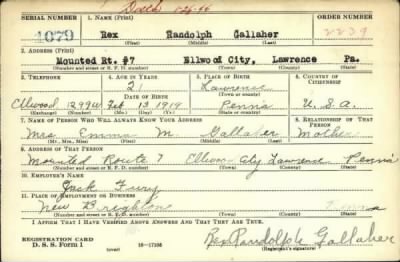 SERIAL NUMBER 1. Name (Print) ORDER NUMBER
4079 Rex Randolph Gallaher 2239
(First) (Middle) (Last)
2. Address (Print)
Mounted Rt. #7 Ellwood City, Lawrence Pa.
(Number and street or R. F. D. number) (Town) (County) (State)
3. Telephone 4. Age in Years 5. Place of Birth 6. Country of Citizenship
21 Lawrence
Date of Birth (Town or county)
Ellwood 1299W Feb 13 1919 Penna U.S.A.
(Exchange) (Number) (Mo.) (Day) (Yr.) (State or country)
7. Name of Person Who Will Always Know Your Address 8. Relationship of That Person
Mrs Emma M. Gallaher Mother
(Mr., Mrs., Miss) (First) (Middle) (Last)
9. Address of That Person
Mounted Route 7 Ellwood City Lawrence Penna
(Number and street or R. F. D. number) (Town) (County) (State)
10. Employer's Name
Jack
11. Place of Employment or Business
New Brighton Penna
(Number and street or R. F. D. number) (Town) (County) (State)
I Affirm That I Have Verified Above Answers and That They Are True.
Registration Card
D. S. S. Form 1 (over) 16-17105
Rex Randolph Gallaher
(Registrant's signature)